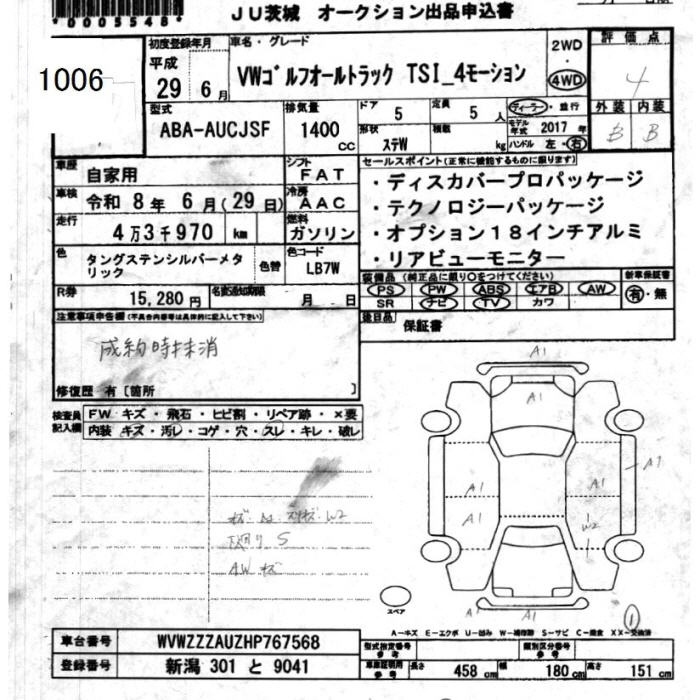 *0005548*
JU茨城 オークション出品申込書
1006
初度登録年月
平成
29 6月
車名・グレード
VWゴルフオールトラック TSI_4モーション
2WD
・
4WD
評価点
4
外装 内装
B B
型式
ABA-AUCJSF
排気量
1400
cc
ドア
5
定員
5人
形状
ステW
積載
kg
ディーラー・並行
モデル年式 2017年
ハンドル 左・右
車歴
自家用
シフト
FAT
車検
令和 8年 6月(29日)
冷房
AAC
走行
4万3千970 km
燃料
ガソリン
色
タングステンシルバーメタリック
色替
色コード
LB7W
R券
15,280円
名変通知期限
月 日
セールスポイント(正常に機能するものに限ります)
・ディスカバープロパッケージ
・テクノロジーパッケージ
・オプション18インチアルミ
・リアビューモニター
装備品(純正品に限り○をつけてください)
PS PW ABS エアB AW
SR ナビ TV カワ
新車保証書
有・無
後日品
保証書
注意事項申告欄(不具合内容等は具体的に記入して下さい)
成約時抹消
修復歴 有〔箇所 〕
検査員記入欄
FW キズ・飛石・ヒビ割・リペア跡・×要
内装 キズ・汚レ・コゲ・穴・スレ・キレ・破レ
W2
下廻り S
AWキズ
A1
A1
A1
A1
A1
A1
A1
W2
A1
A1
スペア
1
A−キズ E−エクボ U−凹み W−補修跡 S−サビ C−腐食 XX−交換済
車台番号
WVWZZZAUZHP767568
登録番号
新潟 301 と 9041
型式指定番号
参考
類別区分番号
参考
車庫証明用
参考
長さ 458 cm
幅 180 cm
高さ 151 cm